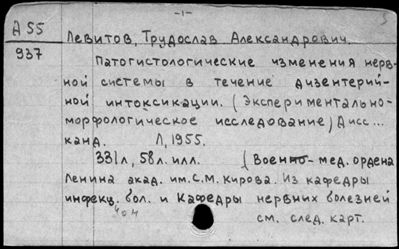 -1-
А 55
937
Левитов, Трудослав Александрович.
Патогистологические изменения нерв-
ной системы в течение дизентерий-
ной интоксикации. (Экспериментально-
морфологическое исследование) Дисс...
канд. Л, 1955.
331 л, 58 л. илл. (Военно-мед. ордена
Ленина акад. им. С.М. Кирова. Из кафедры
инфекц. бол. и кафедры нервных болезней
см. след. карт.